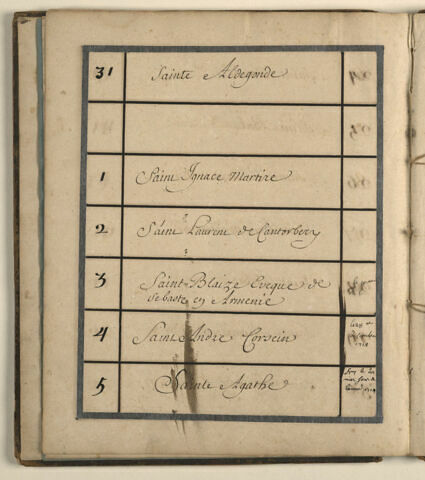 31 Sainte Aldegonde
1 Saint Ignace Martire
2 Saint Laurent de Cantorbery
3 Saint Blaize Eveque de
Sebaste en Armenie
4 Saint André Corsein
5 Sainte Agathe